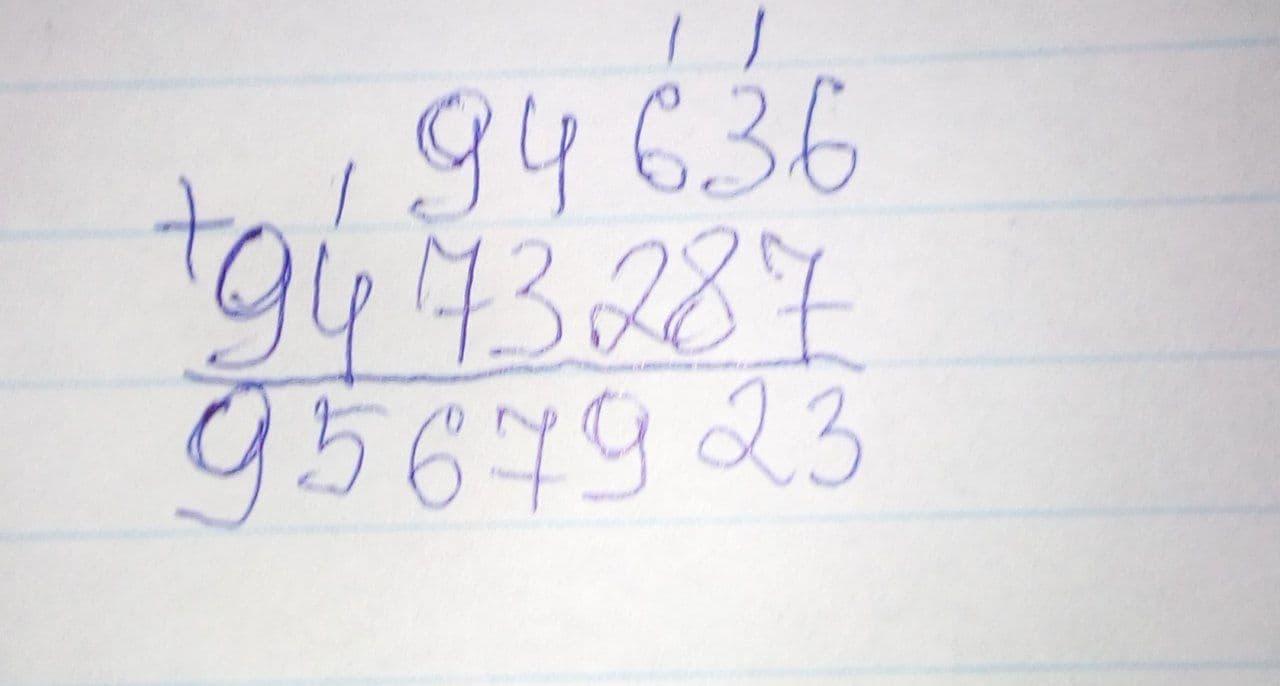 1 1
94 636
1
+ 94 73 287
95679 23